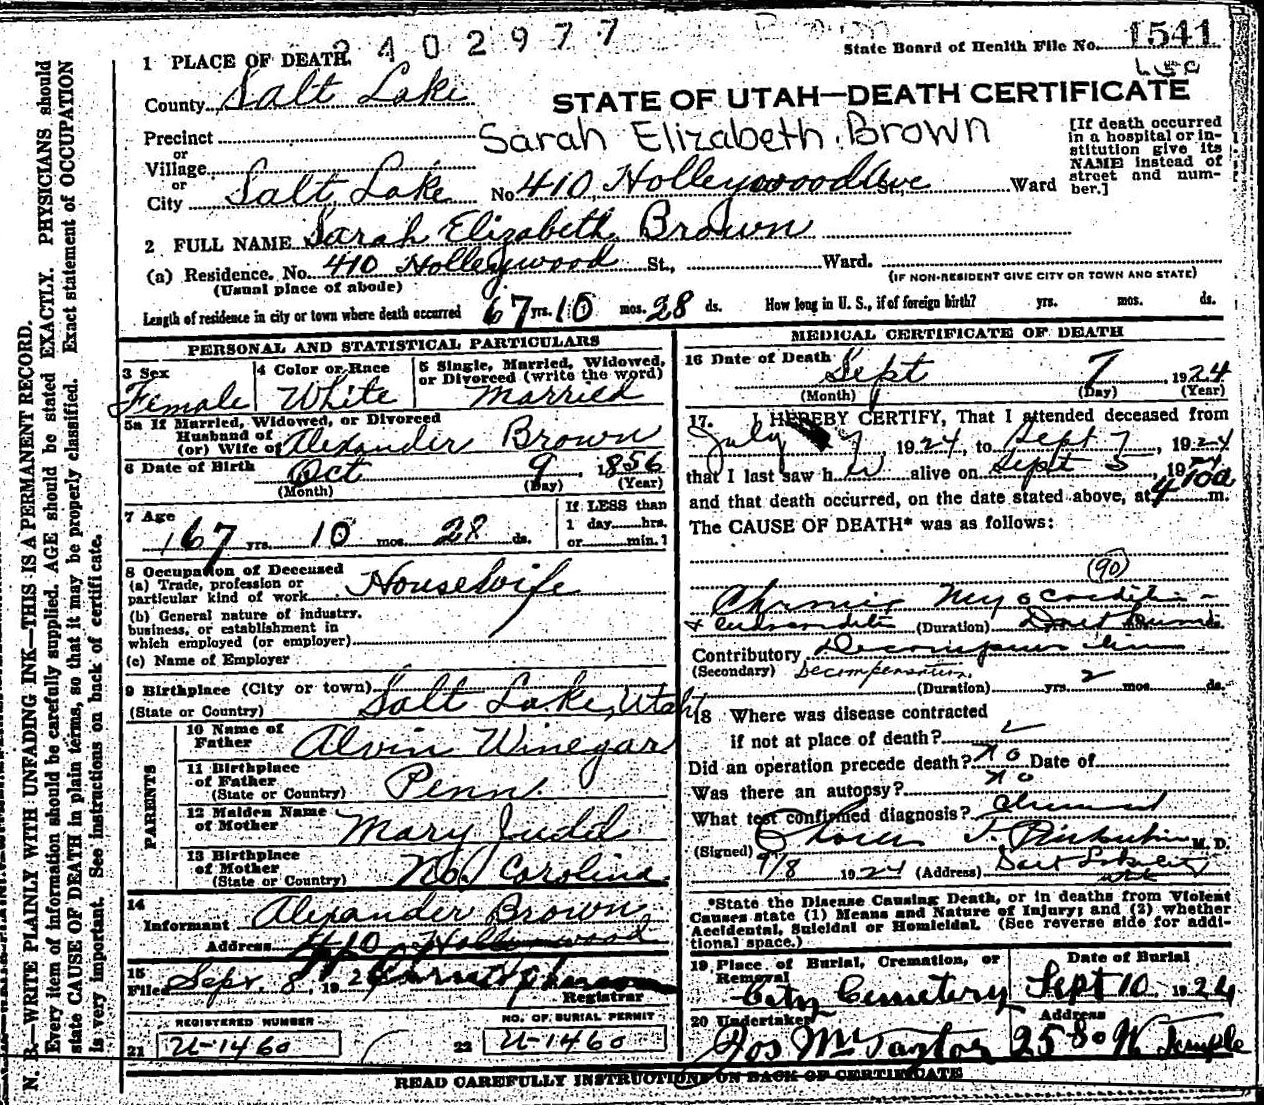 2402977
State Board of Health File No. 1541
1 PLACE OF DEATH.
County Salt Lake
STATE OF UTAH—DEATH CERTIFICATE
Precinct
Sarah Elizabeth Brown
[If death occurred in a hospital or institution give its NAME instead of street and number.]
or
Village
or
City Salt Lake No. 410 Holleywood Ave Ward
2 FULL NAME Sarah Elizabeth Brown
(a) Residence. No. 410 Holleywood St., Ward.
(Usual place of abode) (IF NON-RESIDENT GIVE CITY OR TOWN AND STATE)
Length of residence in city or town where death occurred 67 yrs. 10 mos. 28 ds. How long in U. S., if of foreign birth? yrs. mos. ds.
PERSONAL AND STATISTICAL PARTICULARS
3 Sex
Female
4 Color or Race
White
5 Single, Married, Widowed, or Divorced (write the word)
Married
5a If Married, Widowed, or Divorced
Husband of
(or) Wife of Alexander Brown
6 Date of Birth Oct 9, 1856
(Month) (Day) (Year)
7 Age
67 yrs. 10 mos. 28 ds.
If LESS than
1 day hrs.
or min.?
8 Occupation of Deceased
(a) Trade, profession or
particular kind of work Housewife
(b) General nature of industry,
business, or establishment in
which employed (or employer)
(c) Name of Employer
9 Birthplace (City or town) Salt Lake, Utah
(State or Country)
PARENTS
10 Name of
Father Alvin Winegar
11 Birthplace
of Father Penn.
(State or Country)
12 Maiden Name
of Mother Mary Judd
13 Birthplace
of Mother No. Carolina
(State or Country)
14
Informant Alexander Brown
Address 410 Holleywood
15
Filed Sept. 8, 192
Registrar
REGISTERED NUMBER
21 U-1460
NO. OF BURIAL PERMIT
22 U-1460
MEDICAL CERTIFICATE OF DEATH
16 Date of Death Sept 7, 1924
(Month) (Day) (Year)
17. I HEREBY CERTIFY, That I attended deceased from
July 1924, to Sept 7, 1924
that I last saw her alive on Sept 5, 1924
and that death occurred, on the date stated above, at 4 10a m.
The CAUSE OF DEATH* was as follows:
(90)
Chronic Myocarditis
+ endocarditis (Duration) Don't ds.
Contributory Decompensation
(Secondary) Decompensation
(Duration) yrs. 2 mos. ds.
18 Where was disease contracted
if not at place of death?
Did an operation precede death? no Date of
Was there an autopsy? no
What test confirmed diagnosis?
(Signed) M. D.
9/8 1924 (Address) Salt Lake City
*State the Disease Causing Death, or in deaths from Violent
Causes state (1) Means and Nature of Injury; and (2) whether
Accidental, Suicidal or Homicidal. (See reverse side for addi-
tional space.)
19 Place of Burial, Cremation, or
Removal
City Cemetery
Date of Burial
Sept 10, 1924
20 Undertaker
Jos Wm Taylor
Address
25 So W Temple
READ CAREFULLY INSTRUCTIONS ON BACK OF CERTIFICATE
N. B.—WRITE PLAINLY WITH UNFADING INK—THIS IS A PERMANENT RECORD.
Every item of information should be carefully supplied. AGE should be stated EXACTLY. PHYSICIANS should
state CAUSE OF DEATH in plain terms, so that it may be properly classified. Exact statement of OCCUPATION
is very important. See instructions on back of certificate.